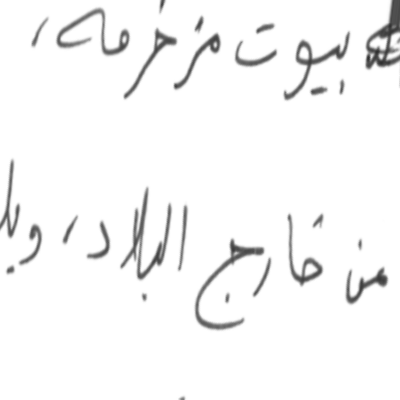 بيوت مزخرفه،
من خارج البلاد،